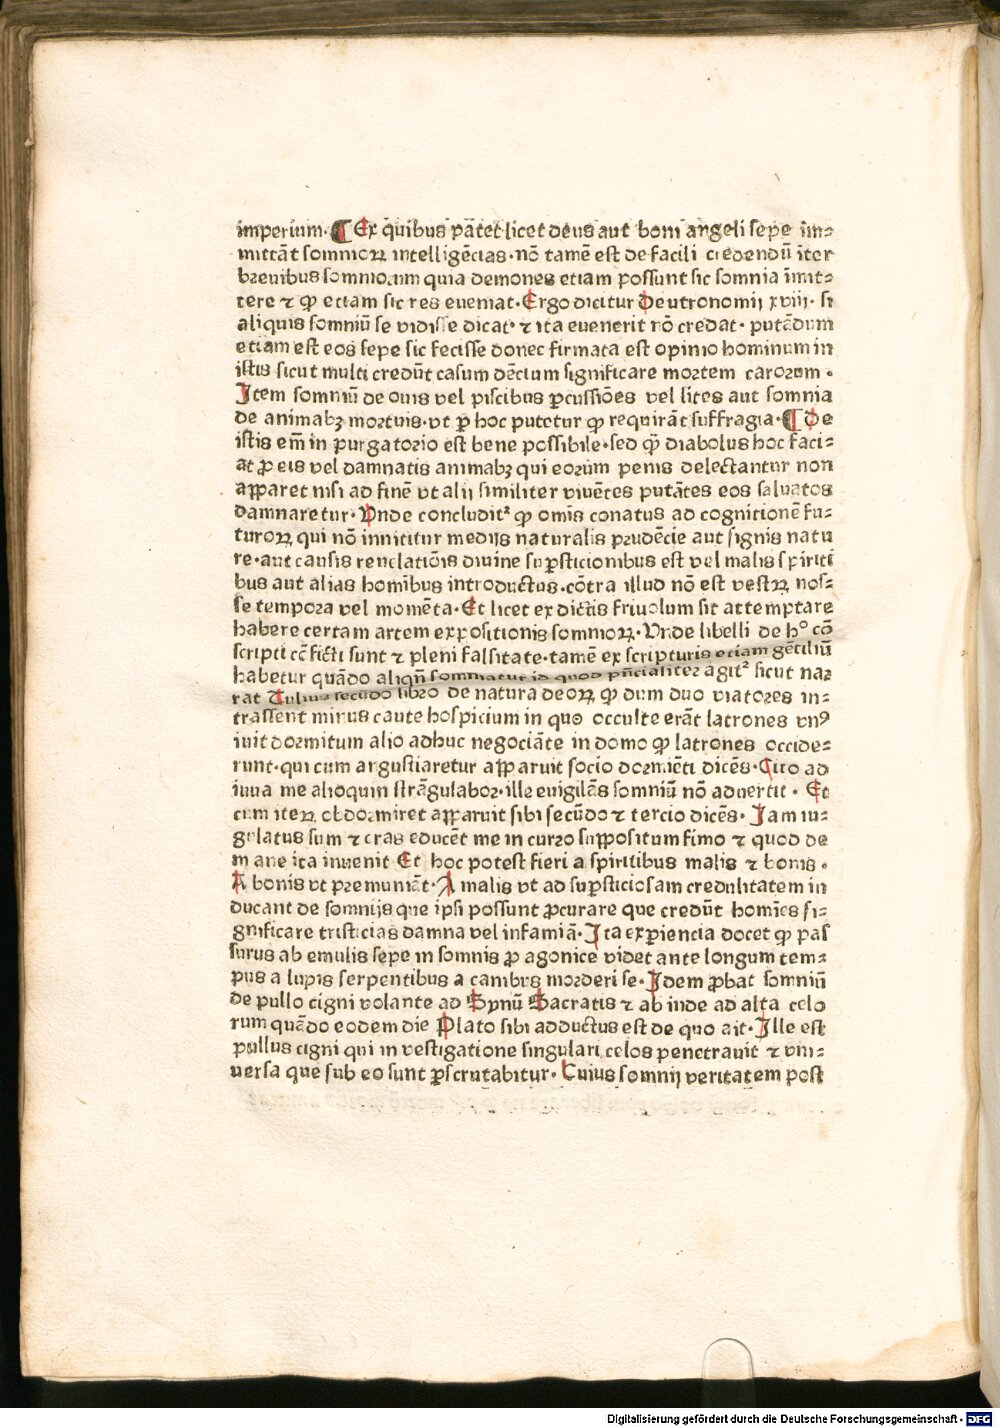 imperium. ¶ Ex quibus patet licet deus aut boni angeli sepe im⸗
mittāt somnioꝝ intelligēcias. nō tamē est de facili credendū iter
breuibus somniorum quia demones etiam possunt sic somnia īmit⸗
tere ⁊ ꝙ etiam sic res eueniat. Ergo dicitur Deutronomij xviij. si
aliquis somniū se vidisse dicat. ⁊ ita euenerit nō credat. putādum
etiam est eos sepe sic fecisse donec firmata est opinio hominum in
istis sicut multi credūt casum dēcium significare mortem carorum.
Item somniū de ouis vel piscibus ꝑcussiōes vel lites aut somnia
de animabꝫ mortuis. vt ꝑ hoc putetur ꝙ requirāt suffragia. ¶ De
istis em̄ in purgatorio est bene possibile. sed ꝙ diabolus hoc faci⸗
at ꝓ eis vel damnatis animabꝫ qui eorum penis delectantur non
apparet nisi ad finē vt alij similiter viuētes putātes eos saluatos
damnaretur. Vnde concludit᷑ ꝙ omīs conatus ad cognitionē fu⸗
turoꝝ qui nō innititur medijs naturalis prudēcie aut signis natu
re. aut causis reuelatiōis diuine suꝑsticionibus est vel malis spiriti
bus aut alias homībus introductus. cōtra illud nō est vestꝝ nos⸗
se tempora vel momēta. Et licet ex dictis friuolum sit attemptare
habere certam artem expositionis somnioꝝ. Vnde libelli de hº cō
scripti cē ficti sunt ⁊ pleni falsitate. tamē ex scripturis etiam gētiliū
habetur quādo aliqn̄ somniatur id quod pn̄cialiter agit᷑ sicut nar
rat Tulius secūdo libro de natura deoꝝ ꝙ dum duo viatores in⸗
trassent mirus caute hospicium in quo occulte erāt latrones vnꝰ
iuit dormitum alio adhuc negociāte in domo ꝙ latrones occide⸗
runt. qui cum argustiaretur apparuit socio dormiēti dicēs. Cito ad
iuua me alioquin strāgulabor. ille euigilās somniū nō aduertit. Et
cum iteꝝ obdormiret apparuit sibi secūdo ⁊ tercio dicēs. Jam iu⸗
gulatus sum ⁊ cras educēt me in curro suppositum fimo ⁊ quod de
mane ita inuenit Et hoc potest fieri a spiritibus malis ⁊ bonis.
A bonis vt premuniāt. A malis vt ad suꝑsticiosam credulitatem in
ducant de somnijs que ipsi possunt ꝓcurare que credūt homīes si⸗
gnificare tristicias damna vel infamiā. Ita exꝑiencia docet ꝙ pas
surus ab emulis sepe in somnis ꝓ agonice videt ante longum tem⸗
pus a lupis serpentibus a canibus morderi se. Idem ꝓbat somniū
de pullo cigni volante ad Synū Sacratis ⁊ ab inde ad alta celo
rum quādo eodem die Plato sibi adductus est de quo ait. Ille est
pullus cigni qui in vestigatione singulari celos penetrauit ⁊ vni⸗
uersa que sub eo sunt ꝑscrutabitur. Cuius somnij veritatem post
Digitalisierung gefördert durch die Deutsche Forschungsgemeinschaft - DFG